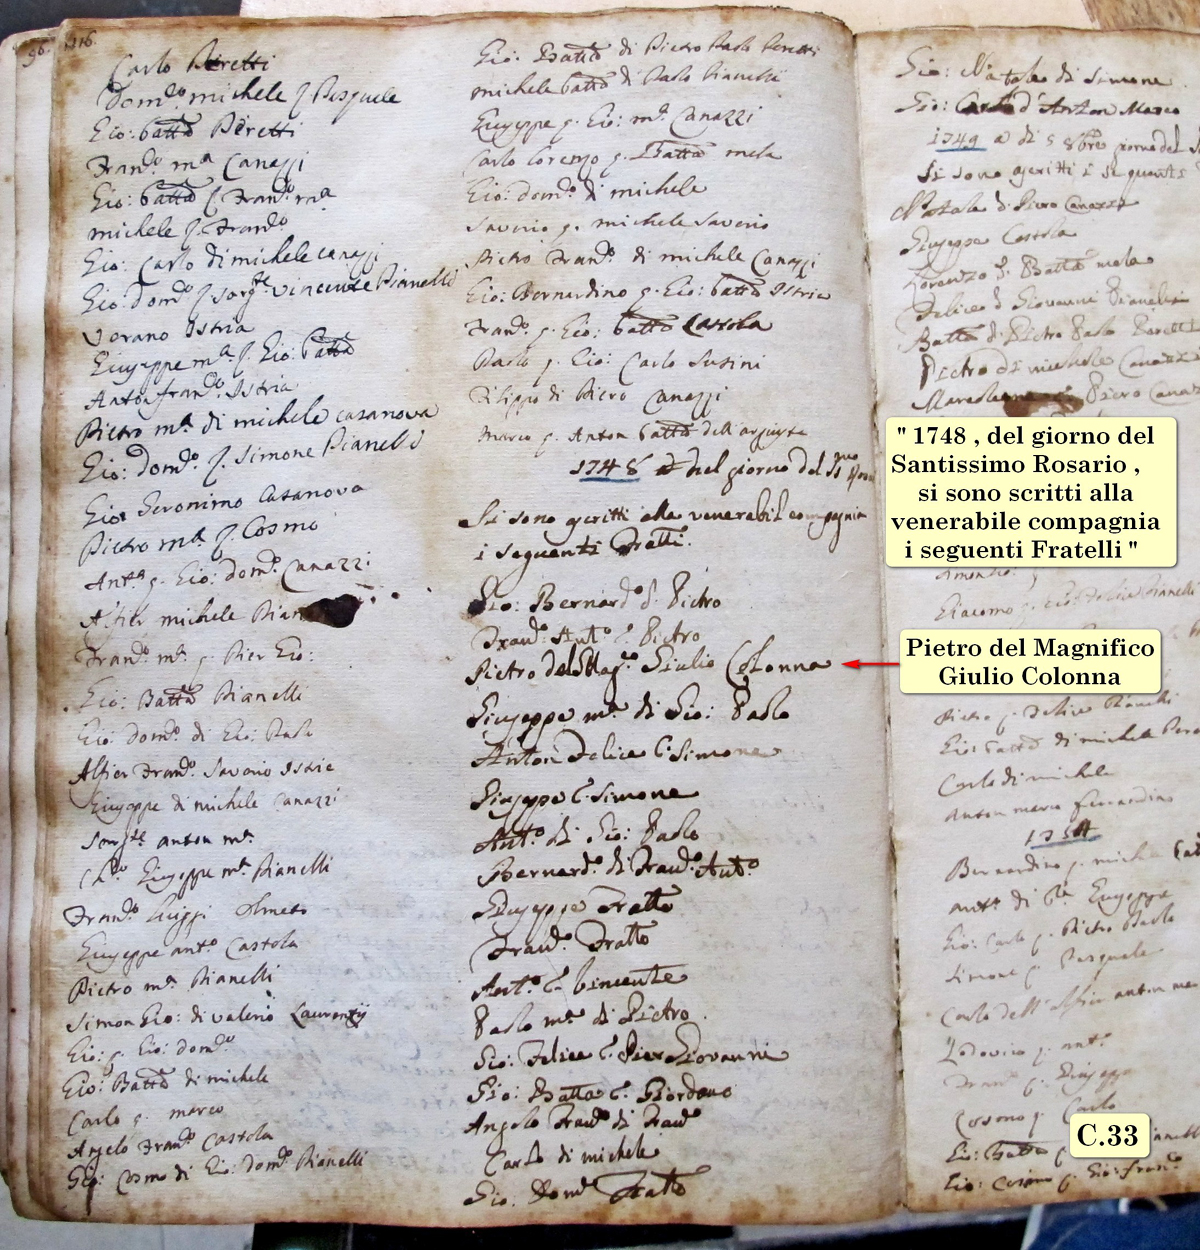 96. 116.
Carlo Peretti
Dom:co michele q. Pasquale
Gio: batta Peretti
Fran:co m.a Canazzi
Gio: batta q. Fran:co m.a
michele q. Fran:co
Gio: Carlo di michele canazzi
Gio: dom:co q. sarg:te vincente Pianelli
Istria
Giuseppe m.a q. Gio: batta
Anton fran:co Istria
Pietro m.a di michele casanova
Gio: dom:co q. Simone Pianelli
Gio: Geronimo Casanova
Pietro m.a q. Cosmo
Ant.o q. Gio: dom:co Canazzi
Alfier michele
Fran:co m.a q. Pier Gio:
Gio: Batta Pianelli
Gio: dom:co di Gio: Paolo
Alfier Fran:co Saverio Istria
Giuseppe di michele Canazzi
anton m.a
Giuseppe m.a Pianelli
Fran:co Olmeto
Giuseppe ant.o Castola
Pietro m.a Pianelli
Simon Gio: di valerio Laurenzij
Gio: q. Gio: dom:co
Gio: Batta di michele
Carlo q. marco
Angelo Fran:co Castola
Gio: Cosmo di Gio: dom:co Pianelli
Gio: Batta di Pietro Paolo Peretti
michele batta di Paolo Pianelli
Giuseppe q. Gio: m.a Canazzi
Carlo Lorenzo q. Batta mela
Gio: dom:co di michele
Saverio q. michele Saverio
Pietro Fran:co di michele Canazzi
Gio: Bernardino q. Gio: batta Istria
Fran:co q. Gio: batta
Paolo q. Gio: Carlo Susini
Filippo di Piero Canazzi
Marco q. Anton batta
1748 del giorno del S.mo
Si sono scritti alla venerabil compagnia
i seguenti Fratti.
Gio: Bernard.o q. Pietro
Fran:co Ant.o q. Pietro
Pietro del Mag.co Giulio Colonna
Giuseppe m.a di Gio: Paolo
Anton Felice q. Simone
Giuseppe q. Simone
Ant.o di Gio: Paolo
Bernard.o di Fran:co Ant.o
Giuseppe Fratto
Fran:co Fratto
Ant.o q. bincente
Paolo m.a di Pietro
Gio: Felice q. Pier Giovanni
Gio: Batta q. Giordano
Angelo Fran:co di Fran:co
Carlo di michele
Gio: Dom:co Fratto
Gio: Natale di Simone
Gio: Carlo d'Anton Marco
1749 a di 5 8bre giorno del
Si sono scritti i seguenti
Natale di Piero Canazzi
Giuseppe Castola
Lorenzo q. Batta mela
Felice di Giovanni Pianelli
Batta di Pietro Paolo Peretti
Pietro di michele Canazzi
Piero
" 1748 , del giorno del
Santissimo Rosario ,
si sono scritti alla
venerabile compagnia
i seguenti Fratelli "
Giacomo q. Gio: Felice Pianelli
Pietro del Magnifico
Giulio Colonna
Pietro q. Felice Bianchi
Gio: batta di michele
Carlo di michele
Anton maria ferrandino
1754
Bernardino q. michele
ant.o di Giuseppe
Gio: Carlo q. Pietro Paolo
Simone q. Pasquale
Carlo dell'Alfier anton
Lodovico q. ant.o
Fran:co q. Giuseppe
Cosmo q. Carlo
C.33
Gio: Batta
Gio: Cosimo q. Gio: fran:co